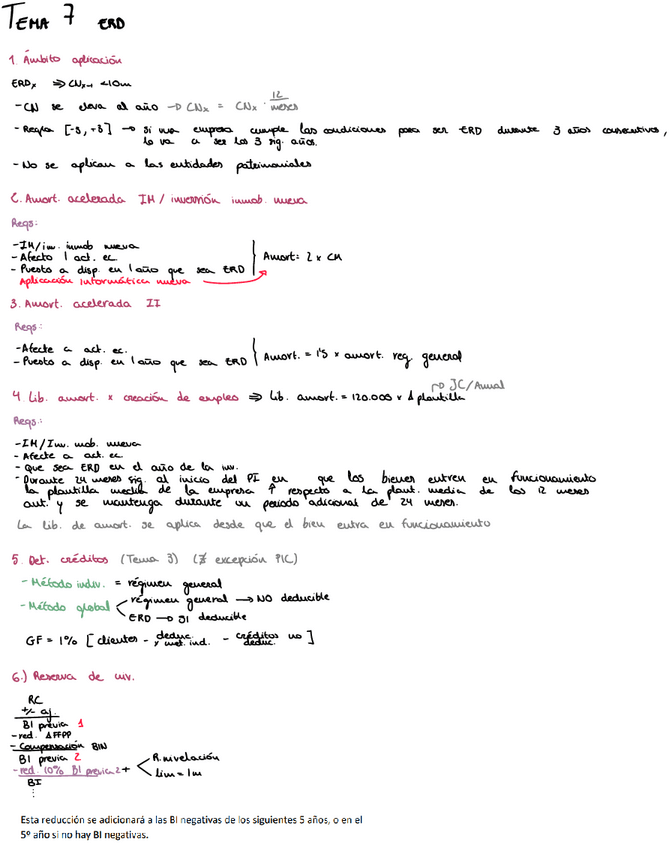 TEMA 7 ERD
1. Ámbito aplicación
ERDx ⇒ CNx-1 < 10m
- CN se eleva al año → CNx = CNx · 12/meses
- Regla [-3, +3] → si una empresa cumple las condiciones para ser ERD durante 3 años consecutivos,
lo va a ser los 3 sig. años.
- No se aplican a las entidades patrimoniales
2. Amort. acelerada IM / inversión inmob. nueva
Reqs:
- IM/inv. inmob nueva
- Afecto 1 act. ec.
- Puesto a disp. en 1 año que sea ERD
Amort = 2 x CM
Aplicación informática nueva
3. Amort. acelerada II
Reqs:
- Afecte a act. ec.
- Puesto a disp. en 1 año que sea ERD
Amort. = 1'5 x amort. reg. general
4. Lib. amort. x creación de empleo ⇒ Lib. amort. = 120.000 x Δ plantilla
→ JC/Anual
Reqs:
- IM/Inv. mob. nueva
- Afecte a act. ec.
- Que sea ERD en el año de la inv.
- Durante 24 meses sig. al inicio del PI en que los bienes entren en funcionamiento
la plantilla media de la empresa ↑ respecto a la plant. media de los 12 meses
ant. y se mantenga durante un periodo adicional de 24 meses.
La lib. de amort. se aplica desde que el bien entra en funcionamiento
5. Det. créditos (Tema 3) (∄ excepción PIC)
- Método indiv. = régimen general
- Método global
régimen general → NO deducible
ERD → SI deducible
GF = 1% [clientes - deduc. x met. ind. - créditos no deduc.]
6.) Reserva de inv.
RC
+/- aj.
BI previa 1
- red. AFFPP
- Compensación BIN
BI previa 2
- red. 10% BI previa 2 +
R. nivelación
lim = 1m
BI
⋮
Esta reducción se adicionará a las BI negativas de los siguientes 5 años, o en el
5º año si no hay BI negativas.